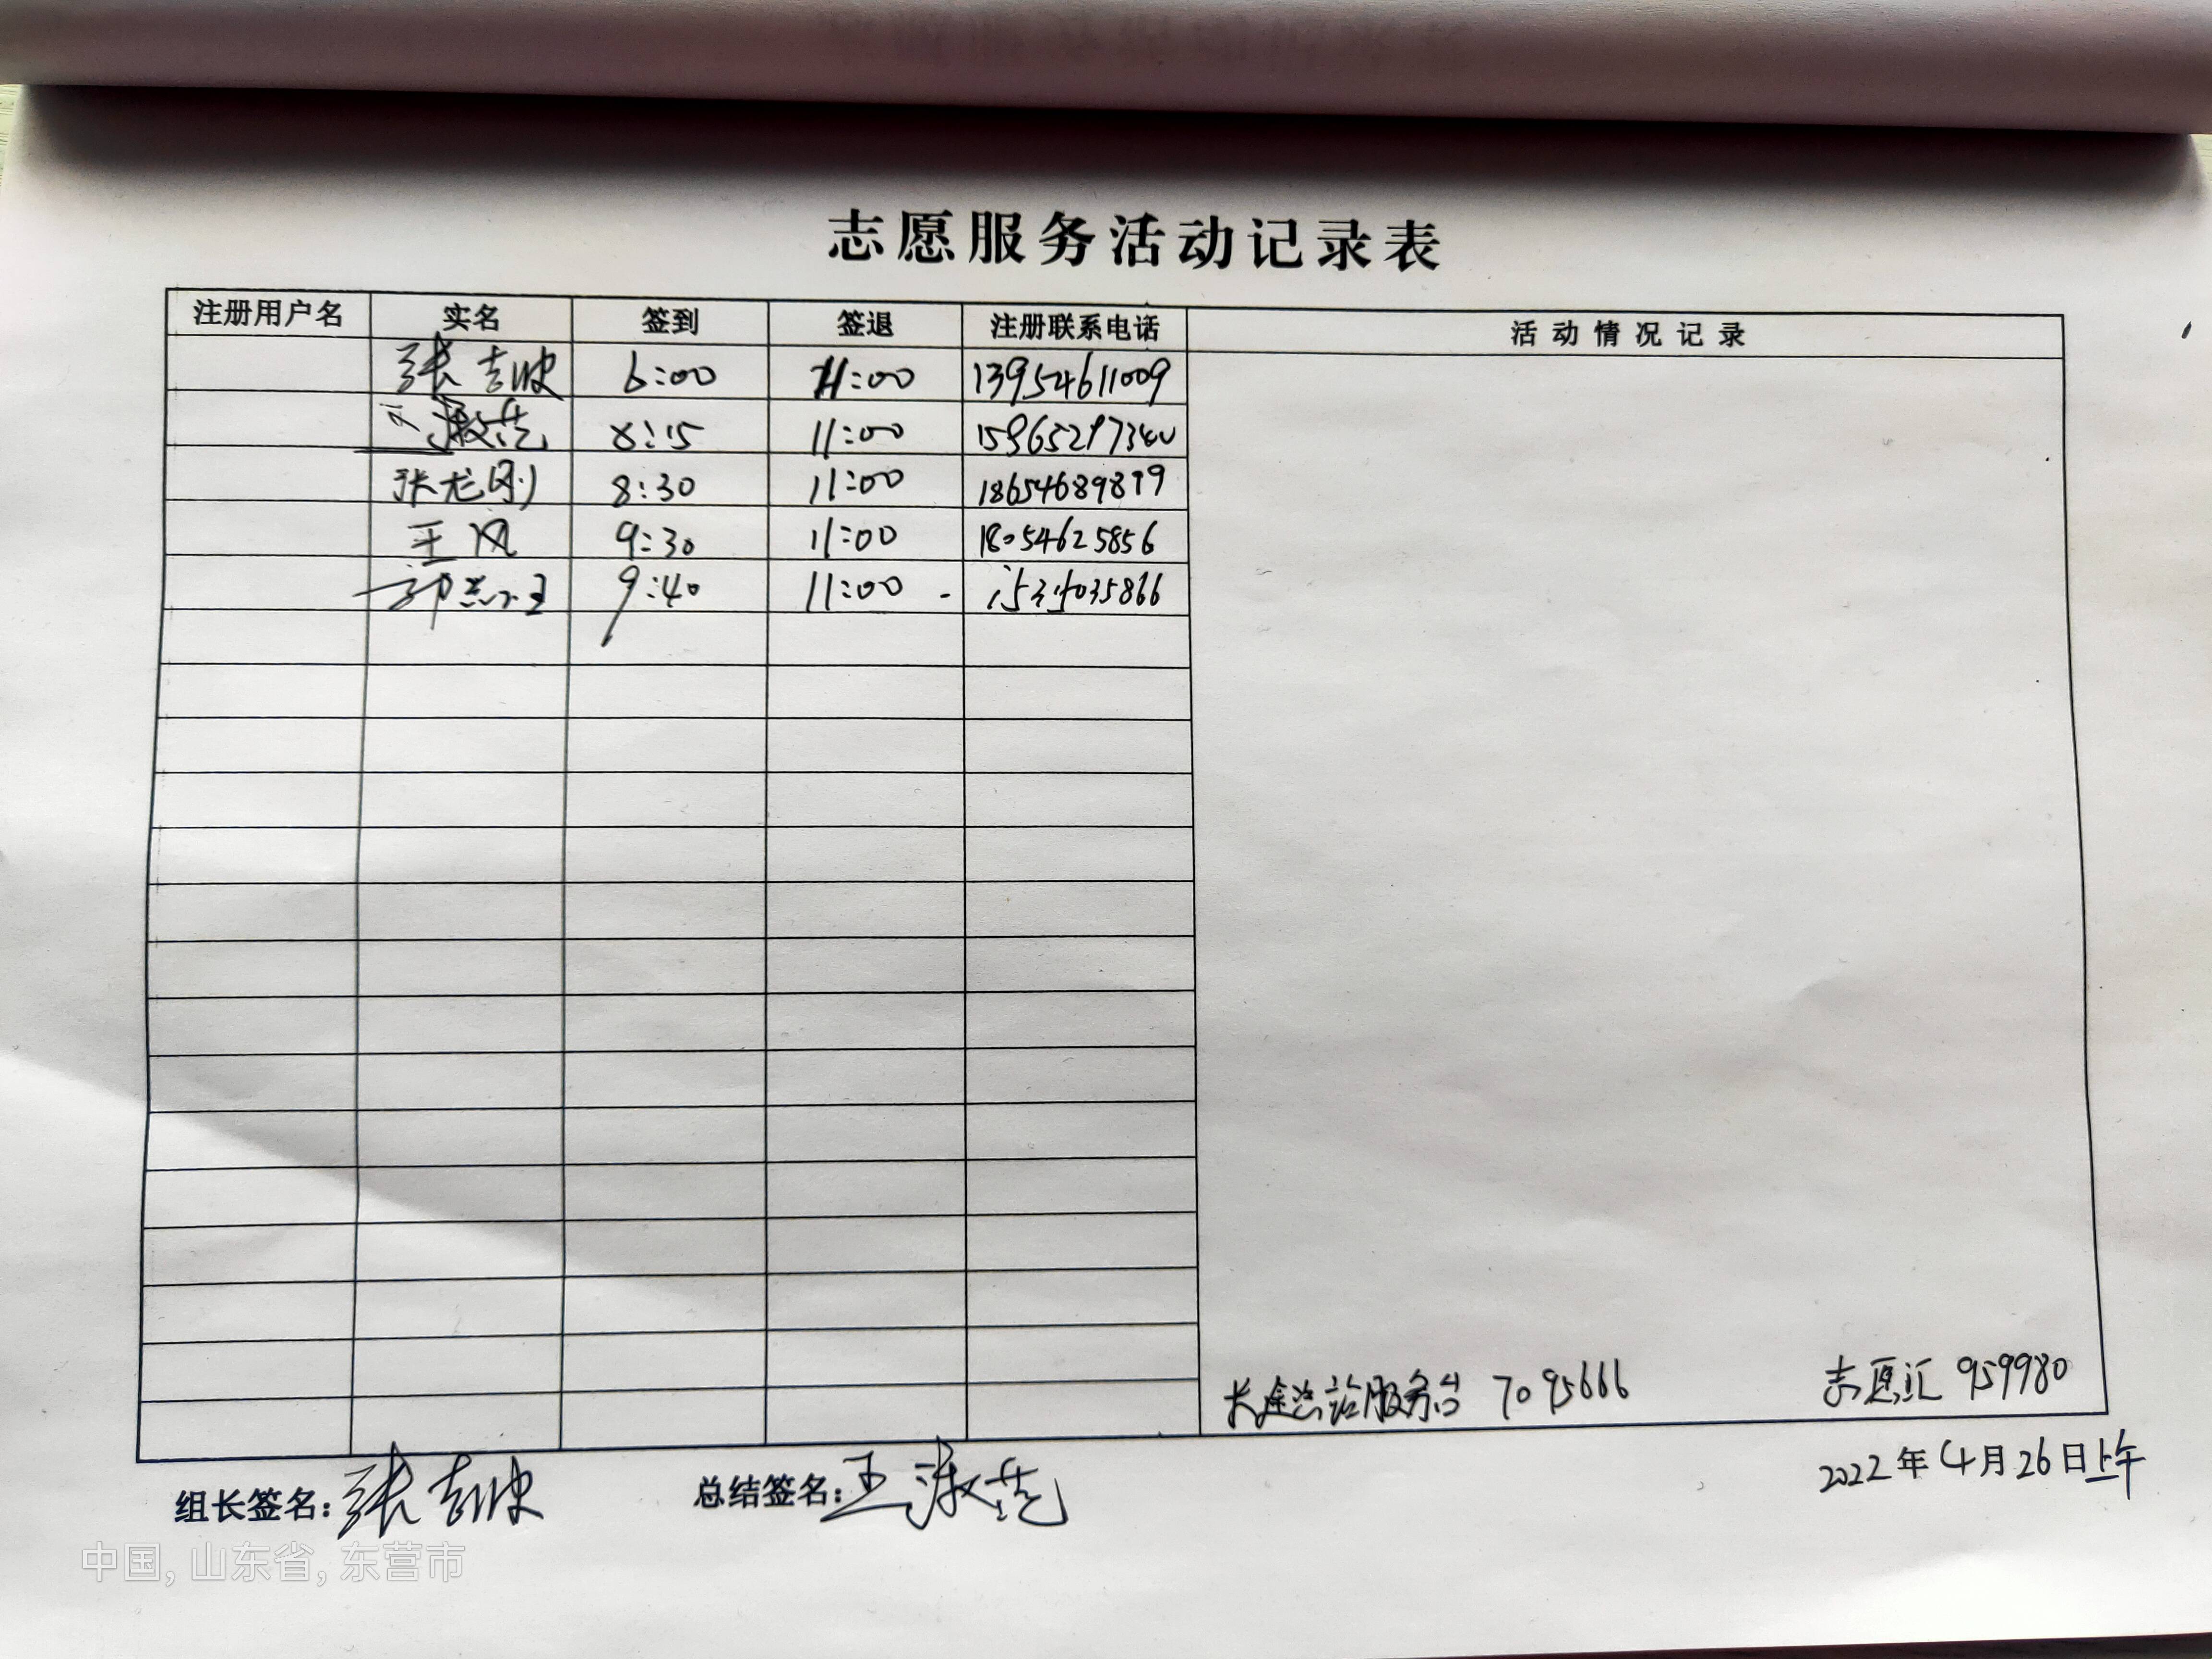 志愿服务活动记录表
注册用户名 实名 签到 签退 注册联系电话 活动情况记录
张吉波 6:00 11:00 13954611009
王淑芝 8:15 11:00
张龙刚 8:30 11:00 18654689899
王风 9:30 11:00 18054625856
9:40 11:00
服务台 7095666 志愿汇 959980
组长签名：张吉波 总结签名：王淑芝 2022年4月26日上午
中国, 山东省, 东营市